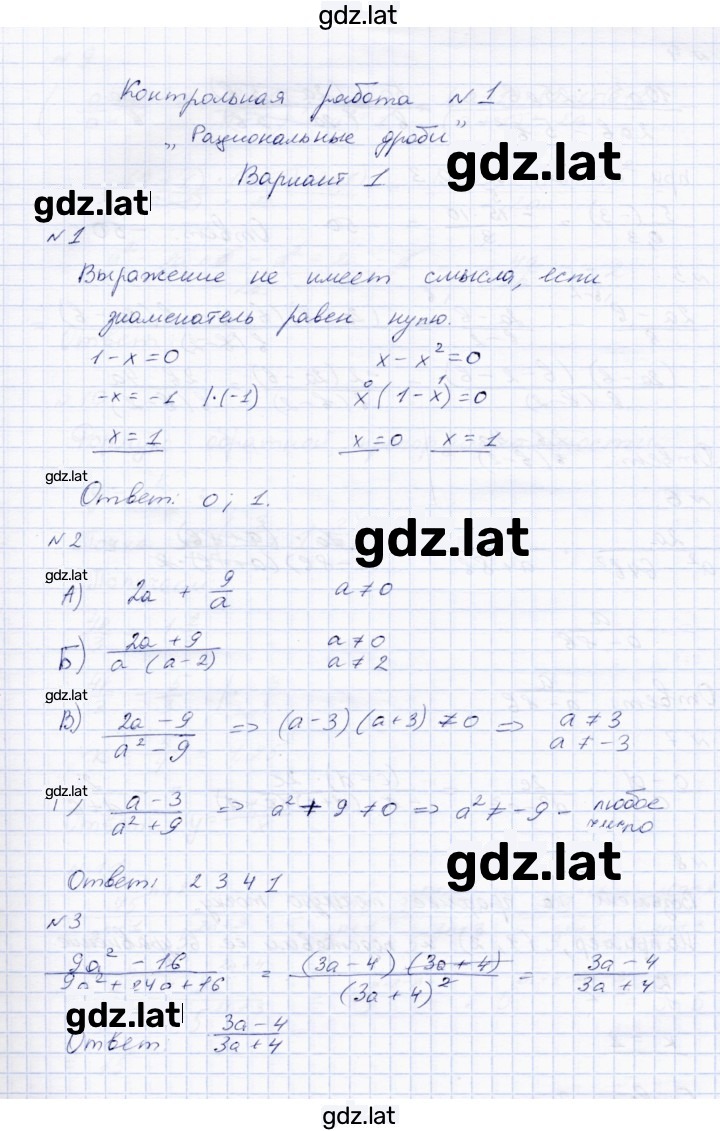 gdz.lat
Контрольная работа №1
„Рациональные дроби”
gdz.lat
Вариант 1
gdz.lat
№1
Выражение не имеет смысла, если
знаменатель равен нулю.
1-x=0 x-x²=0
-x=-1 |·(-1) x(1-x)=0
x=1 x=0 x=1
gdz.lat
Ответ: 0; 1.
№2
gdz.lat
gdz.lat
А) 2a + 9/a a≠0
Б) (2a+9)/(a(a-2)) a≠0
a≠2
gdz.lat
В) (2a-9)/(a²-9) => (a-3)(a+3)≠0 => a≠3
a≠-3
gdz.lat
Г) (a-3)/(a²+9) => a²+9≠0 => a²≠-9 - любое
число
gdz.lat
Ответ: 2 3 4 1
№3
(9a²-16)/(9a²+24a+16) = ((3a-4)(3a+4))/(3a+4)² = (3a-4)/(3a+4)
gdz.lat
Ответ: (3a-4)/(3a+4)
gdz.lat